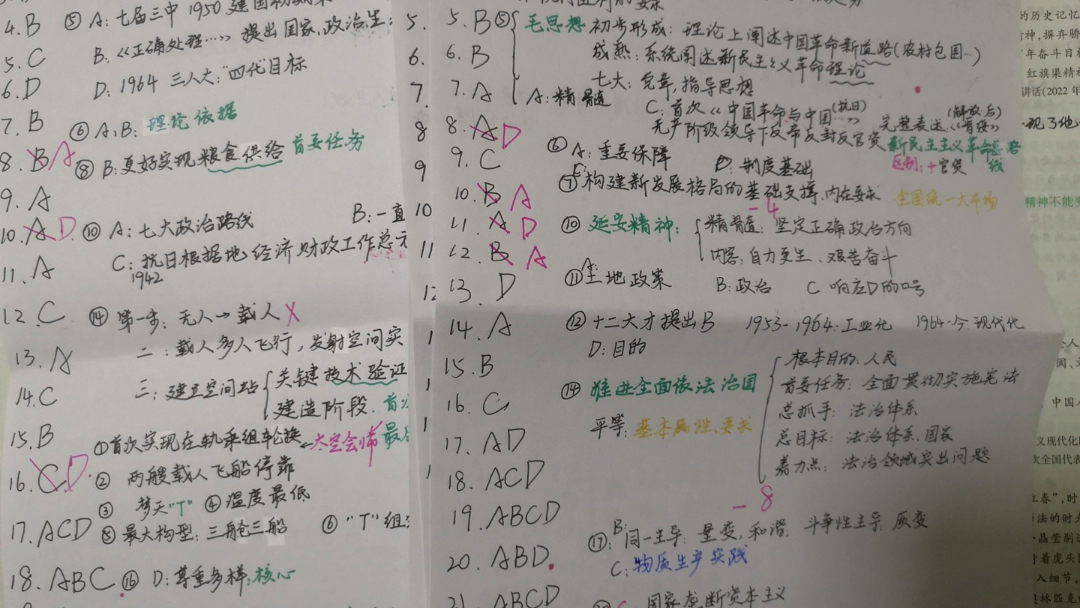 4. B ⑤ A: 七届三中 1950
5. C B:《正确处理…》提出国家,政治生
6. D D: 1964 三人大:"四代目标
7. B ⑥ A、B: 理论依据
8. B A ⑧ B: 更好实现粮食供给 首要任务
9. A
10. A D ⑩ A: 七大政治路线 B: 一直
11. A C: 抗日根据地经济财政工作总方
1942
12. C ⑭ 第一步: 无人→载人 X
13. A 二: 载人多人飞行, 发射空间实
14. C 三: 建立空间站 关键技术验证
建造阶段.
15. B ①首次实现在轨乘组轮换 太空会师
16. C D ② 两艘载人飞船停靠
③ 梦天"T" ④ 温度最低
17. ACD ⑤ 最大构型: 三舱三船 ⑥ "T"组
18. ABC ⑯ D: 尊重多样: 核心
5.
6.
7
8
9
10
11
5. B ⑤ 毛思想 初步形成: 理论上阐述中国革命新道路(农村包围…)
6. B 成熟: 系统阐述新民主主义革命理论
七大: 党章, 指导思想
7. A A: 精髓 C: 首次《中国革命与中国(抗日) 完整表述 (解放后)
8. A D 无产阶级领导下反帝反封反官资 新民主主义革命总路线
9. C ⑥ A: 重要保障 D: 制度基础 区别: +官资
10. B A ⑦ 构建新发展格局的基础支撑, 内在要求 全国统一大市场
-4
11. A D ⑩ 延安精神: 精髓: 坚定正确政治方向
12. B A 内容: 自力更生、艰苦奋斗
13. D ⑪ A: 土地政策 B: 政治 C 响应D的口号
14. A ⑫ 十二大才提出B 1953-1964·工业化 1964-今·现代化
D: 目的
15. B 根本目的: 人民
16. C ⑭ 推进全面依法治国 首要任务: 全面贯彻实施宪法
平等: 基本属性, 要求 总抓手: 法治体系
17. AD 总目标: 法治体系, 国家
18. ACD 着力点: 法治领域突出问题
-8
19. ABCD ⑰ B: 同一主导: 量变, 和谐; 斗争性主导: 质变
20. ABD. C: 物质生产实践
21. ABCD 国家垄断资本主义
的历史记忆
年奋斗目
红旗渠精
讲话(2022年
现了他
精神不能
中国
义现代化
次全国代表
上春",时
法的时
入细节,